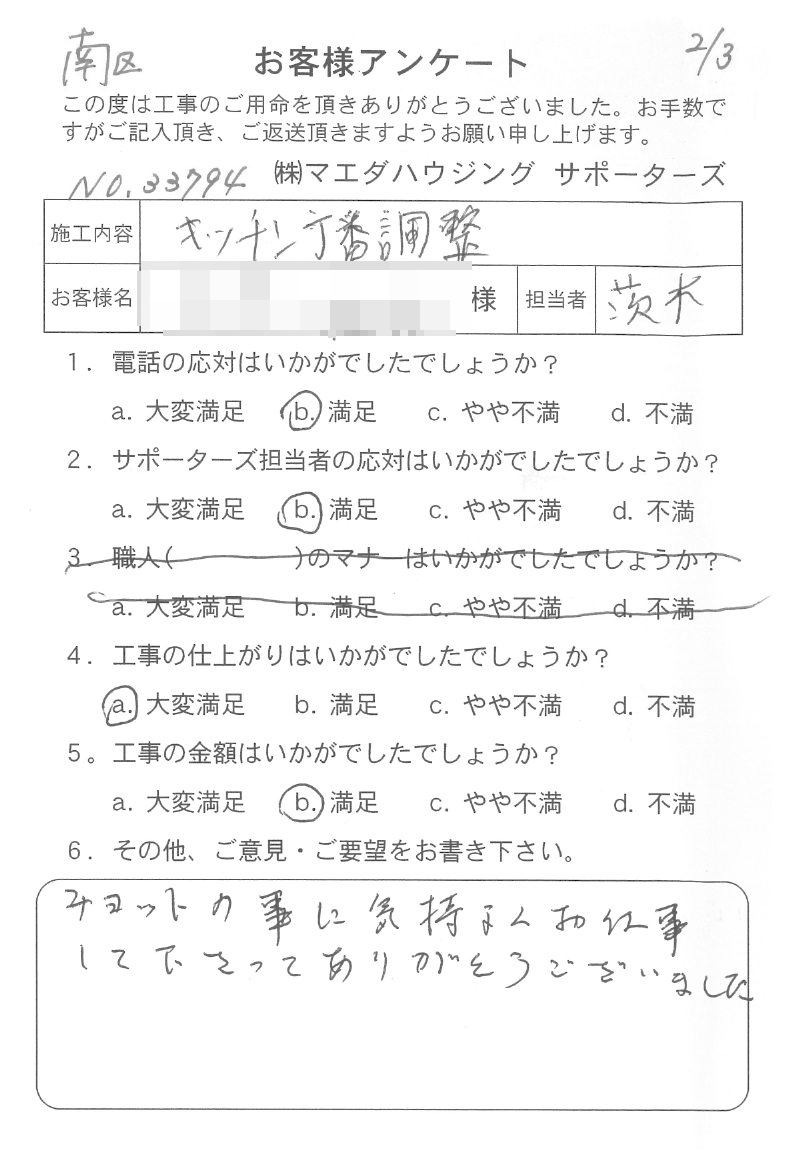 南区 お客様アンケート 2/3
この度は工事のご用命を頂きありがとうございました。お手数で
すがご記入頂き、ご返送頂きますようお願い申し上げます。
NO.33794 ㈱マエダハウジング サポーターズ
施工内容 キッチン丁番調整
お客様名 様 担当者 茨木
1. 電話の応対はいかがでしたでしょうか？
a. 大変満足 b. 満足 c. やや不満 d. 不満
2. サポーターズ担当者の応対はいかがでしたでしょうか？
a. 大変満足 b. 満足 c. やや不満 d. 不満
3. 職人( )のマナーはいかがでしたでしょうか？
a. 大変満足 b. 満足 c. やや不満 d. 不満
4. 工事の仕上がりはいかがでしたでしょうか？
a. 大変満足 b. 満足 c. やや不満 d. 不満
5。工事の金額はいかがでしたでしょうか？
a. 大変満足 b. 満足 c. やや不満 d. 不満
6. その他、ご意見・ご要望をお書き下さい。
チョットの事に気持よくお仕事
して下さってありがとうございました